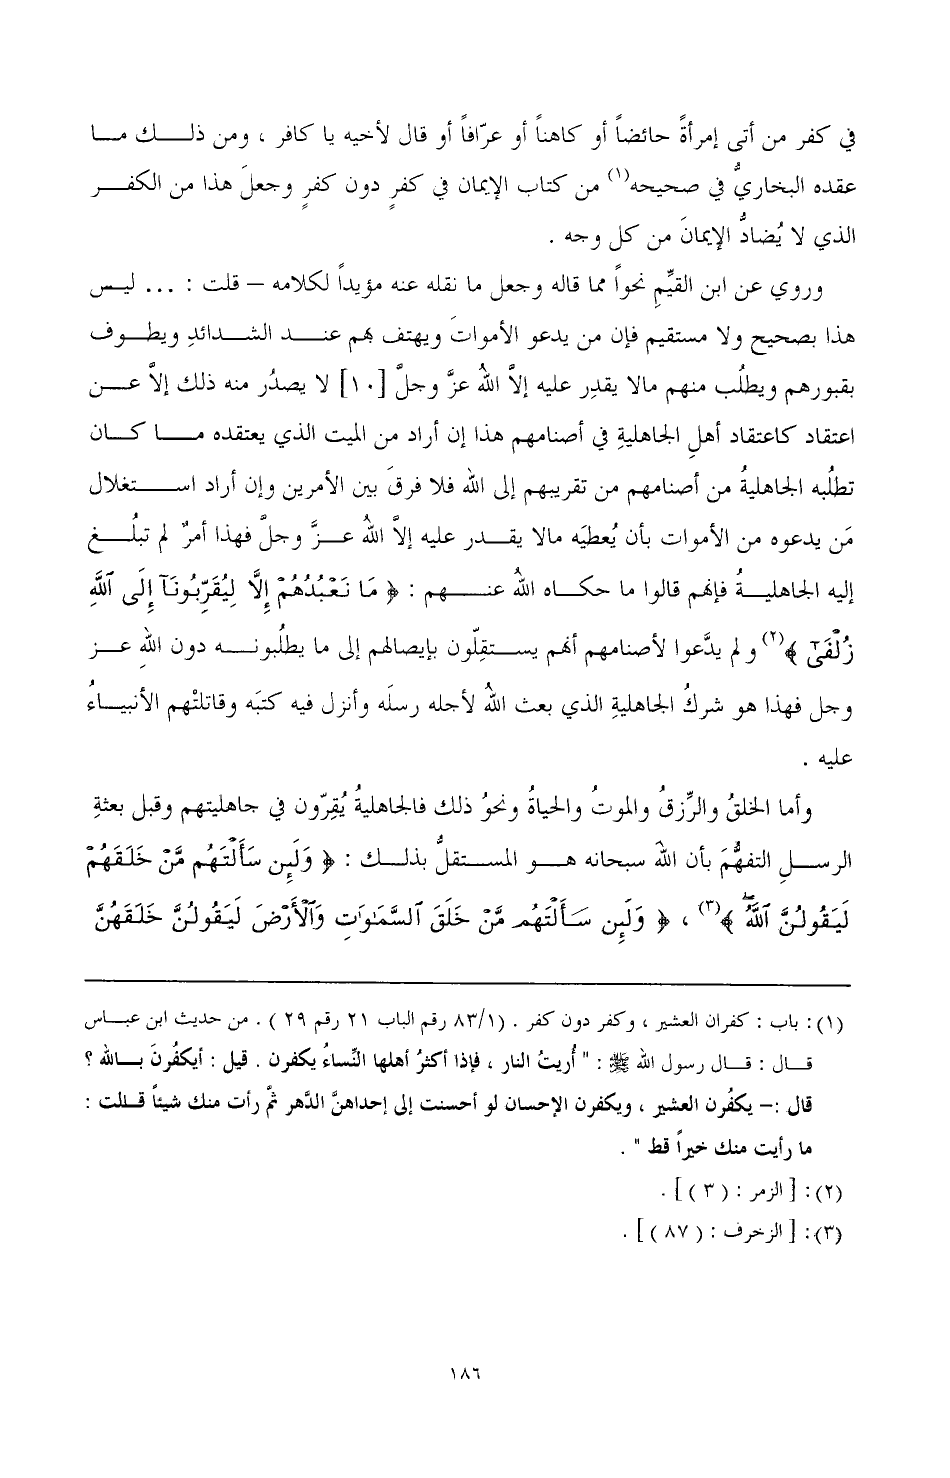 في كفر من أتى إمرأةً حائضاً أو كاهناً أو عرّافاً أو قال لأخيه يا كافر ، ومن ذلك ما
عقده البخاريُّ في صحيحه(١) من كتاب الإيمان في كفرٍ دون كفرٍ وجعلَ هذا من الكفر
الذي لا يُضادُّ الإيمانَ من كل وجه .
وروي عن ابن القيِّم نحواً مما قاله وجعل ما نقله عنه مؤيداً لكلامه – قلت : ... ليس
هذا بصحيح ولا مستقيم فإن من يدعو الأمواتَ ويهتف بهم عند الشدائدِ ويطوف
بقبورهم ويطلُب منهم مالا يقدر عليه إلاَّ اللهُ عزَّ وجلَّ [١٠] لا يصدُر منه ذلك إلاَّ عن
اعتقاد كاعتقاد أهلِ الجاهليةِ في أصنامهم هذا إن أراد من الميت الذي يعتقده ما كان
تطلُبه الجاهليةُ من أصنامهم من تقريبهم إلى اللهِ فلا فرقَ بين الأمرين وإن أراد استغلال
مَن يدعوه من الأموات بأن يُعطيَه مالا يقدر عليه إلاَّ اللهُ عزَّ وجلَّ فهذا أمرٌ لم تبلُغ
إليه الجاهليةُ فإنهم قالوا ما حكاه اللهُ عنهم : ﴿ مَا نَعْبُدُهُمْ إِلَّا لِيُقَرِّبُونَآ إِلَى ٱللَّهِ
زُلْفَىٰٓ ﴾(٢) و لم يدَّعوا لأصنامهم أنهم يستقِلّون بإيصالهم إلى ما يطلُبونه دون اللهِ عز
وجل فهذا هو شركُ الجاهليةِ الذي بعث اللهُ لأجله رسلَه وأنزل فيه كتبَه وقاتلتْهم الأنبياءُ
عليه .
وأما الخلقُ والرِّزقُ والموتُ والحياةُ ونحوُ ذلك فالجاهليةُ يُقِرّون في جاهليتهم وقبل بعثةِ
الرسلِ التفهُّمَ بأن اللهَ سبحانه هو المستقلُّ بذلك : ﴿ وَلَئِن سَأَلْتَهُم مَّنْ خَلَقَهُمْ
لَيَقُولُنَّ ٱللَّهُ ۖ ﴾(٣) ، ﴿ وَلَئِن سَأَلْتَهُم مَّنْ خَلَقَ ٱلسَّمَٰوَٰتِ وَٱلْأَرْضَ لَيَقُولُنَّ خَلَقَهُنَّ
(١): باب : كفران العشير ، وكفر دون كفر . (٨٣/١ رقم الباب ٢١ رقم ٢٩ ) . من حديث ابن عباس
قال : قال رسول الله ﷺ : " أُريتُ النار ، فإذا أكثرُ أهلها النِّساءُ يكفرن . قيل : أيكفُرنَ بالله ؟
قال :– يكفُرن العشير ، ويكفرن الإحسان لو أحسنت إلى إحداهنَّ الدَّهر ثمَّ رأت منك شيئاً قالت :
ما رأيت منك خيراً قط " .
(٢): [ الزمر : ( ٣ ) ] .
(٣): [ الزخرف : ( ٨٧ ) ] .
١٨٦